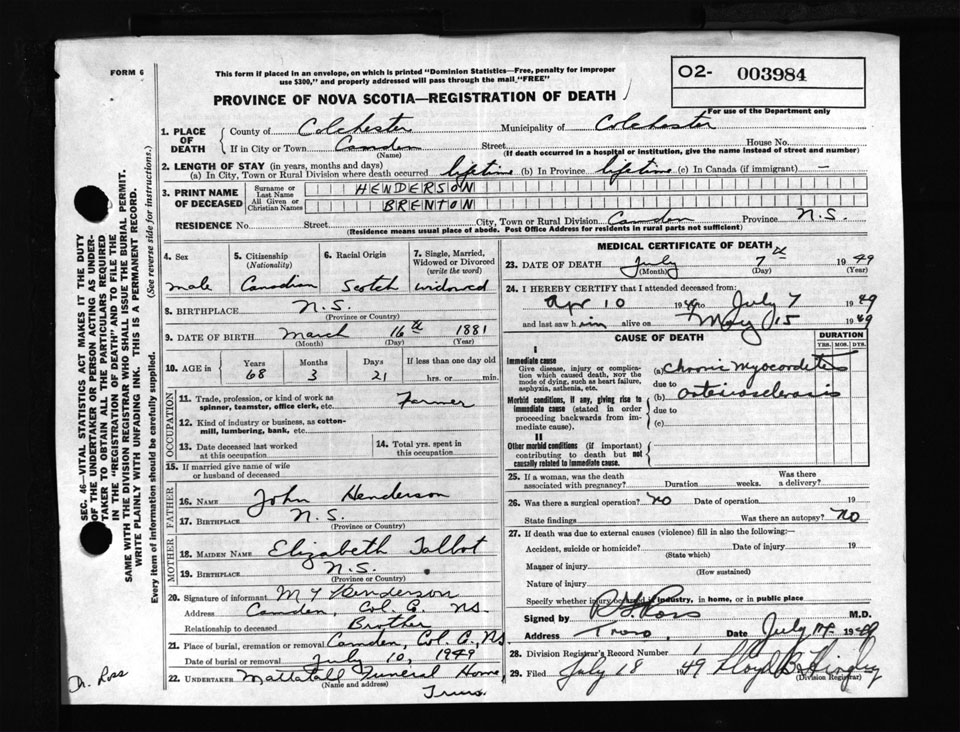 FORM 6
This form if placed in an envelope, on which is printed "Dominion Statistics—Free, penalty for improper
use $300," and properly addressed will pass through the mail "FREE"
O2- 003984
For use of the Department only
PROVINCE OF NOVA SCOTIA—REGISTRATION OF DEATH
1. PLACE OF DEATH
County of Colchester Municipality of Colchester
If in City or Town Camden Street House No.
(Name) (If death occurred in a hospital or institution, give the name instead of street and number)
2. LENGTH OF STAY (in years, months and days)
(a) In City, Town or Rural Division where death occurred lifetime (b) In Province lifetime (c) In Canada (if immigrant) —
3. PRINT NAME OF DECEASED
Surname or Last Name HENDERSON
All Given or Christian Names BRENTON
RESIDENCE No. Street City, Town or Rural Division Camden Province N.S.
(Residence means usual place of abode. Post Office Address for residents in rural parts not sufficient)
4. Sex
male
5. Citizenship (Nationality)
Canadian
6. Racial Origin
Scotch
7. Single, Married, Widowed or Divorced (write the word)
widowed
8. BIRTHPLACE N.S.
(Province or Country)
9. DATE OF BIRTH March 16th 1881
(Month) (Day) (Year)
10. AGE in Years Months Days If less than one day old
68 3 21 hrs. or min.
OCCUPATION
11. Trade, profession, or kind of work as
spinner, teamster, office clerk, etc. Farmer
12. Kind of industry or business, as cotton-
mill, lumbering, bank, etc.
13. Date deceased last worked
at this occupation
14. Total yrs. spent in
this occupation
15. If married give name of wife
or husband of deceased
FATHER
16. NAME John Henderson
17. BIRTHPLACE N.S.
(Province or Country)
MOTHER
18. MAIDEN NAME Elizabeth Talbot
19. BIRTHPLACE N.S.
(Province or Country)
20. Signature of informant M Y Henderson
Address Camden, Col. C. NS.
Relationship to deceased Brother
21. Place of burial, cremation or removal Camden, Col. C., NS.
Date of burial or removal July 10, 1949
22. UNDERTAKER Mattatall Funeral Home,
(Name and address) Truro.
MEDICAL CERTIFICATE OF DEATH
23. DATE OF DEATH July 7th 1949
(Month) (Day) (Year)
24. I HEREBY CERTIFY that I attended deceased from:
Apr 10 1949 to July 7 1949
and last saw him alive on May 15 1949
CAUSE OF DEATH
DURATION
YRS. MOS. DYS.
I
Immediate cause
Give disease, injury or complica-
tion which caused death, not the
mode of dying, such as heart failure,
asphyxia, asthenia, etc.
(a) Chronic Myocarditis
due to
Morbid conditions, if any, giving rise to
immediate cause (stated in order
proceeding backwards from im-
mediate cause).
(b) arteriosclerosis
due to
(c)
II
Other morbid conditions (if important)
contributing to death but not
causally related to immediate cause.
25. If a woman, was the death
associated with pregnancy? Duration weeks. Was there
a delivery?
26. Was there a surgical operation? NO Date of operation 19
State findings Was there an autopsy? NO
27. If death was due to external causes (violence) fill in also the following:—
Accident, suicide or homicide? Date of injury 19
(State which)
Manner of injury
(How sustained)
Nature of injury
Specify whether injury occurred in industry, in home, or in public place
Signed by Ross M.D.
Address Truro, Date July 1949
28. Division Registrar's Record Number 1
29. Filed July 18 1949 Lloyd B.
(Division Registrar)
SEC. 46—VITAL STATISTICS ACT MAKES IT THE DUTY
OF THE UNDERTAKER OR PERSON ACTING AS UNDER-
TAKER TO OBTAIN ALL THE PARTICULARS REQUIRED
IN THE "REGISTRATION OF DEATH" AND TO FILE THE
SAME WITH THE DIVISION REGISTRAR WHO SHALL ISSUE THE BURIAL PERMIT.
WRITE PLAINLY WITH UNFADING INK. THIS IS A PERMANENT RECORD.
Every item of information should be carefully supplied. (See reverse side for instructions.)
Dr. Ross